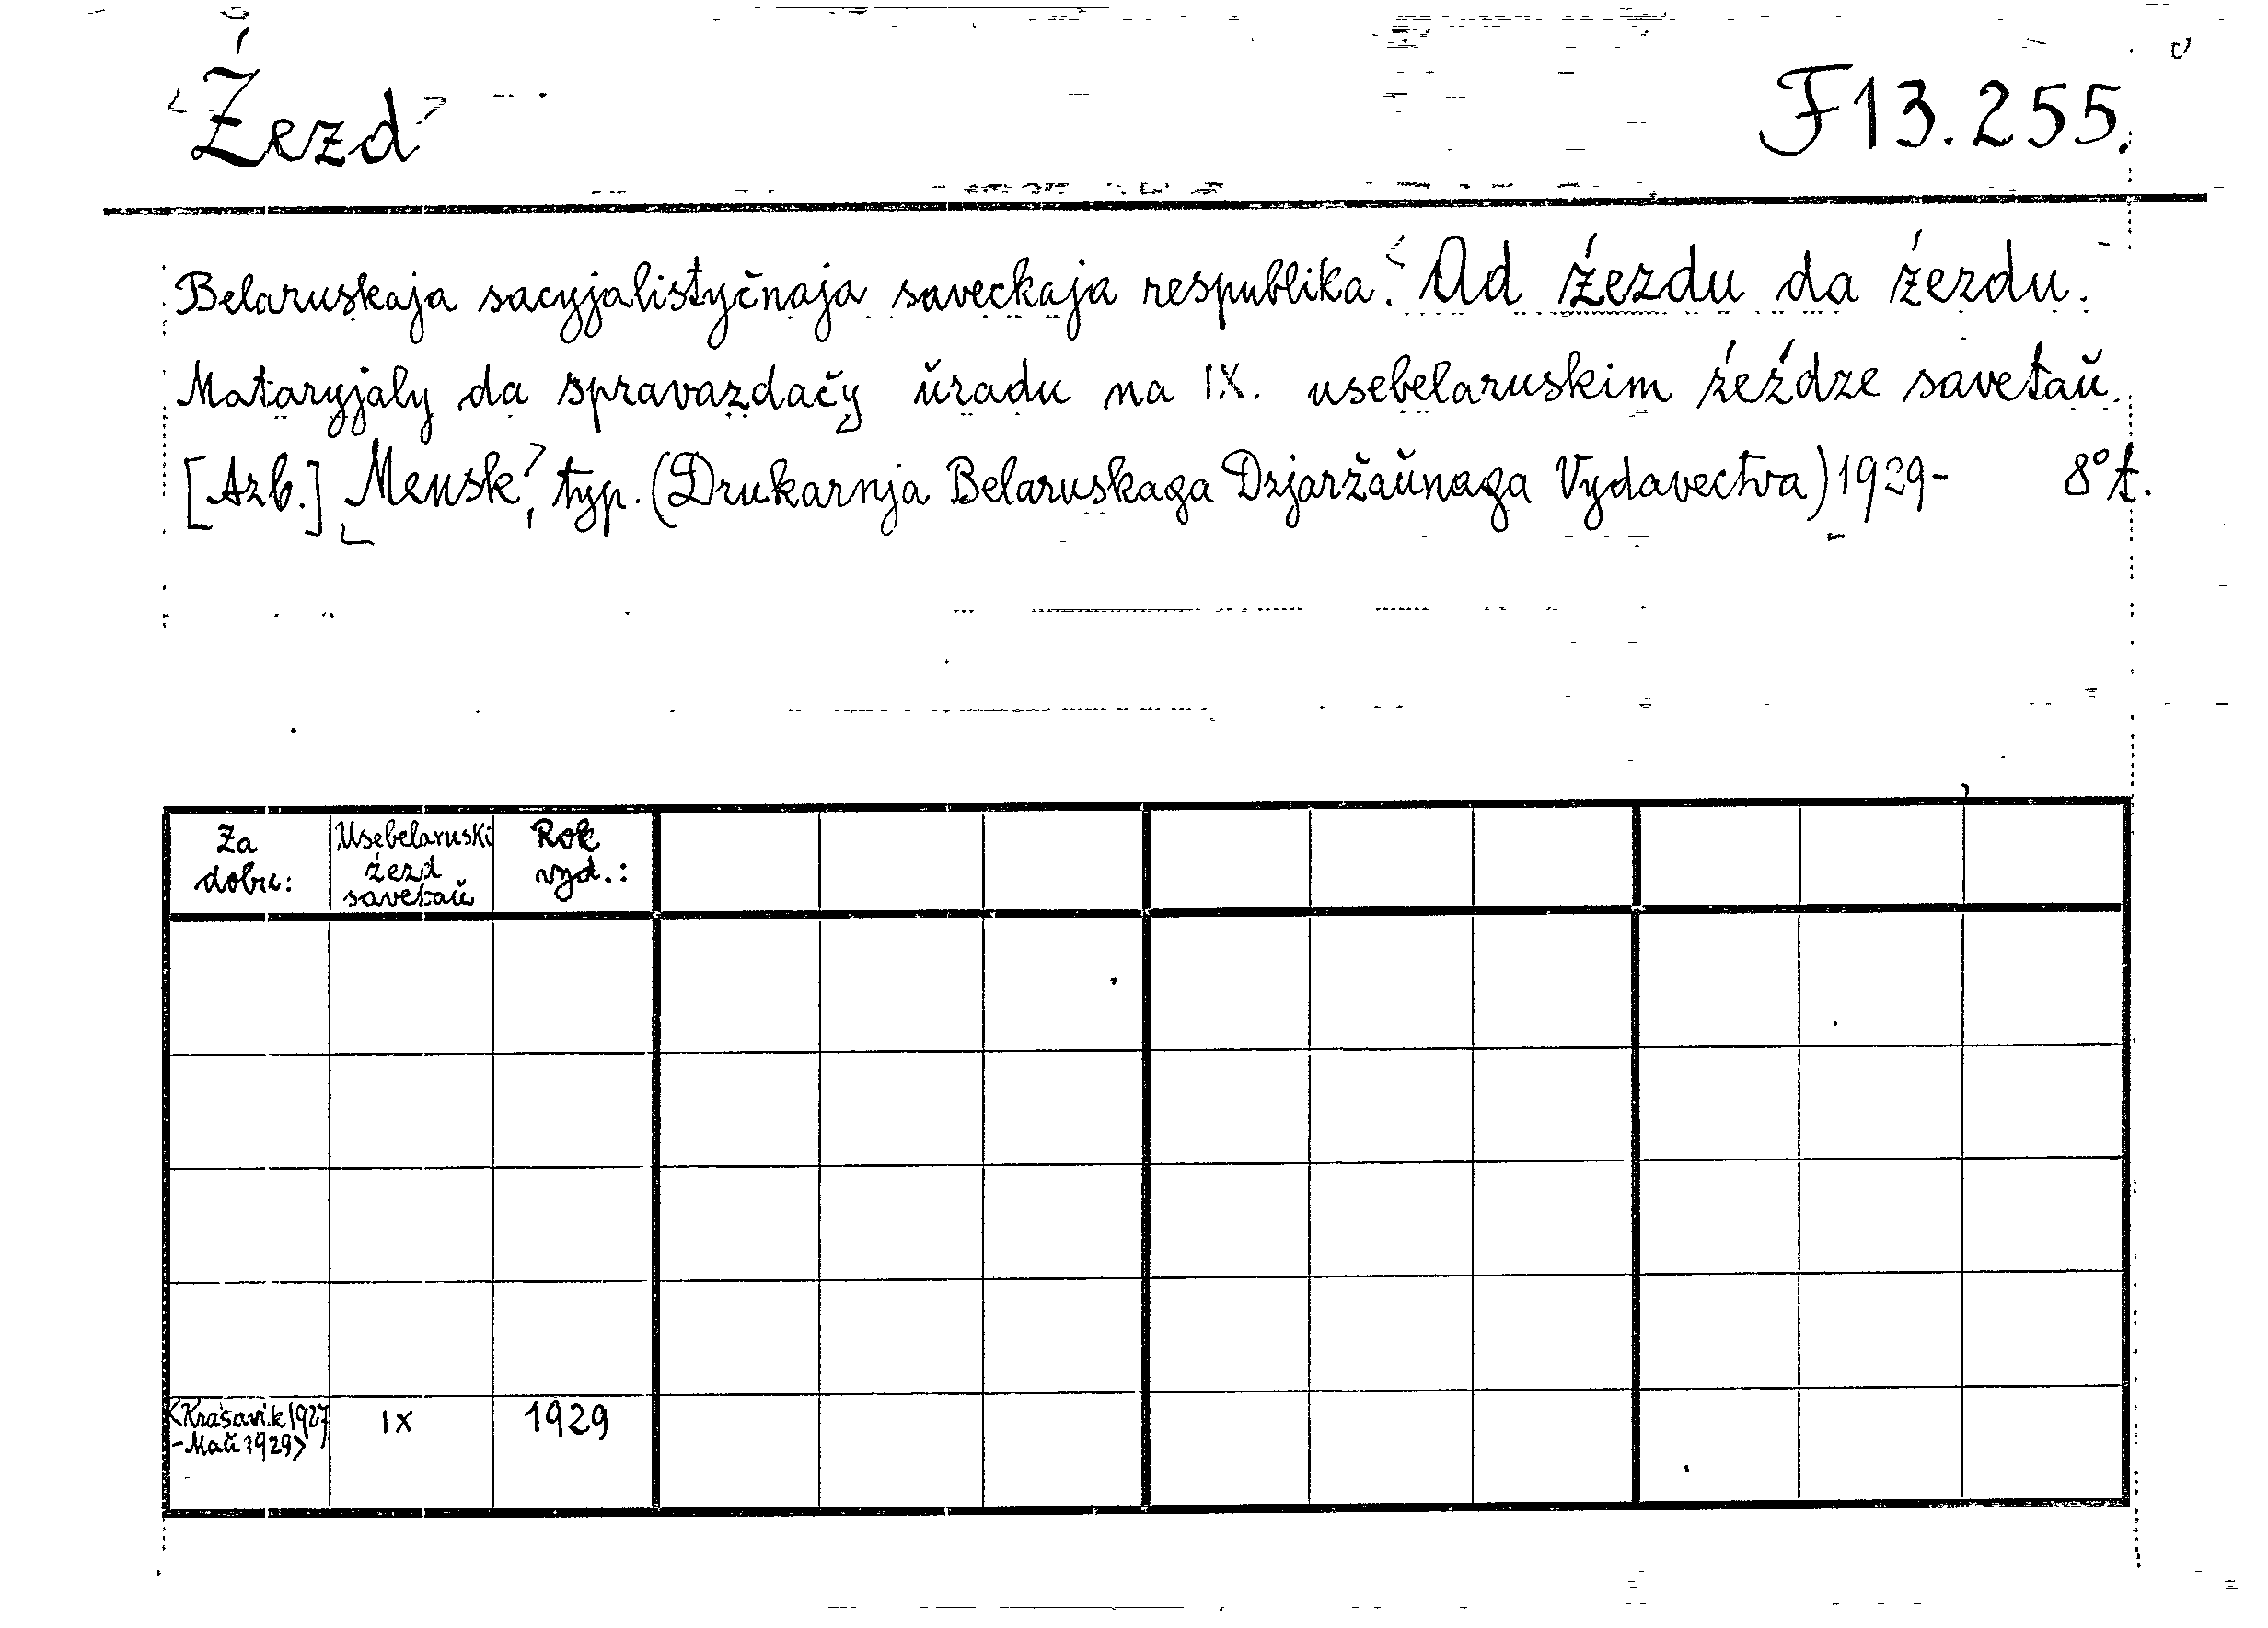 <Źezd> F 13.255.
Belaruskaja sacyjalistyčnaja saveckaja respublika. <Ad źezdu da źezdu.
Mataryjaly da spravazdačy ŭradu na IX. usebelaruskim źeździe savetaŭ.
[Azb.] Mensk>, typ. (Drukarnja Belaruskaga Dzjaržaŭnaga Vydavectva) 1929- 8° t.
Za dobu:
Usebelaruski źezd savetaŭ
Rok vyd.:
<Krasavik 1927
-Mač 1929>
IX
1929